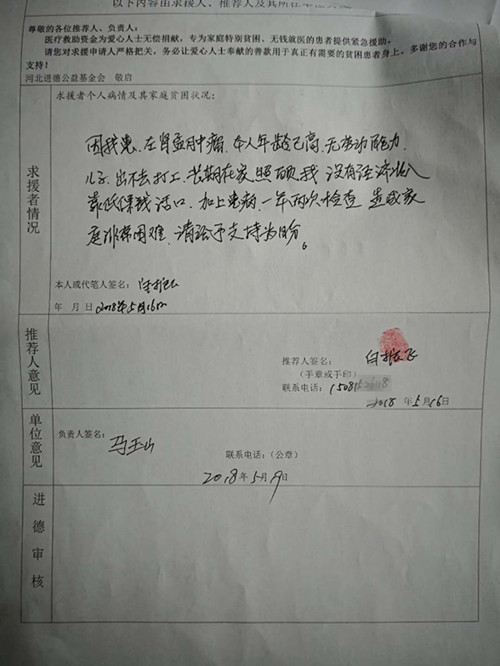 以下内容由求援人、推荐人及其所在单位
尊敬的各位推荐人、负责人：
医疗救助资金为爱心人士无偿捐献，专为家庭特别贫困、无钱就医的患者提供紧急援助。
请您对求援申请人严格把关，务必让爱心人士奉献的善款用于真正有需要的贫困患者身上，多谢您的合作与
支持！
河北进德公益基金会 敬启
求援者情况
求援者个人病情及其家庭贫困状况：
因我患、左肾盂肿瘤、本人年龄已高、无劳动能力、
儿子、出不去打工、长期在家照顾我 没有经济收入
靠低保残活口、加上患病、一年两次检查 造成家
庭非常困难、请给予支持为盼。
本人或代笔人签名：
年 月 日 2018年5月16日
推荐人意见
推荐人签名：白
（手章或手印）
联系电话：1508
2018 年5月16日
单位意见
负责人签名：马玉山
联系电话：（公章）
2018年5月19日
进德审核